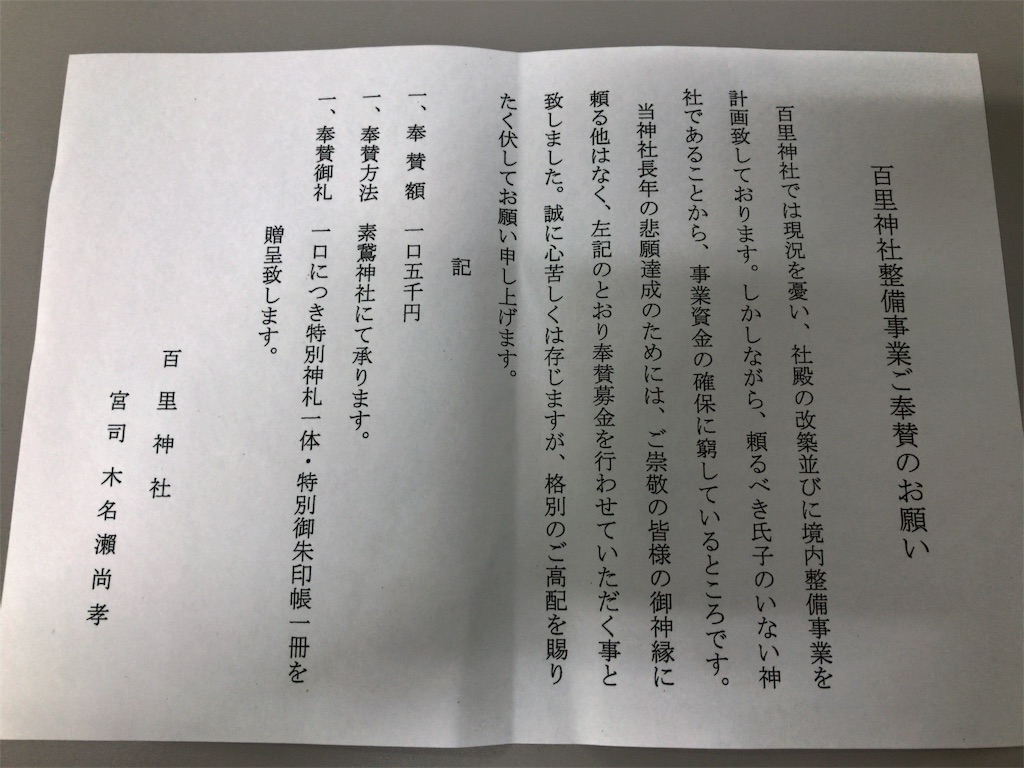 百里神社整備事業ご奉賛のお願い
百里神社では現況を憂い、社殿の改築並びに境内整備事業を
計画致しております。しかしながら、頼るべき氏子のいない神
社であることから、事業資金の確保に窮しているところです。
当神社長年の悲願達成のためには、ご崇敬の皆様の御神縁に
頼る他はなく、左記のとおり奉賛募金を行わせていただく事と
致しました。誠に心苦しくは存じますが、格別のご高配を賜り
たく伏してお願い申し上げます。
記
一、奉賛額 一口五千円
一、奉賛方法 素鵞神社にて承ります。
一、奉賛御礼 一口につき特別神札一体・特別御朱印帳一冊を
贈呈致します。
百里神社
宮司 木名瀬尚孝